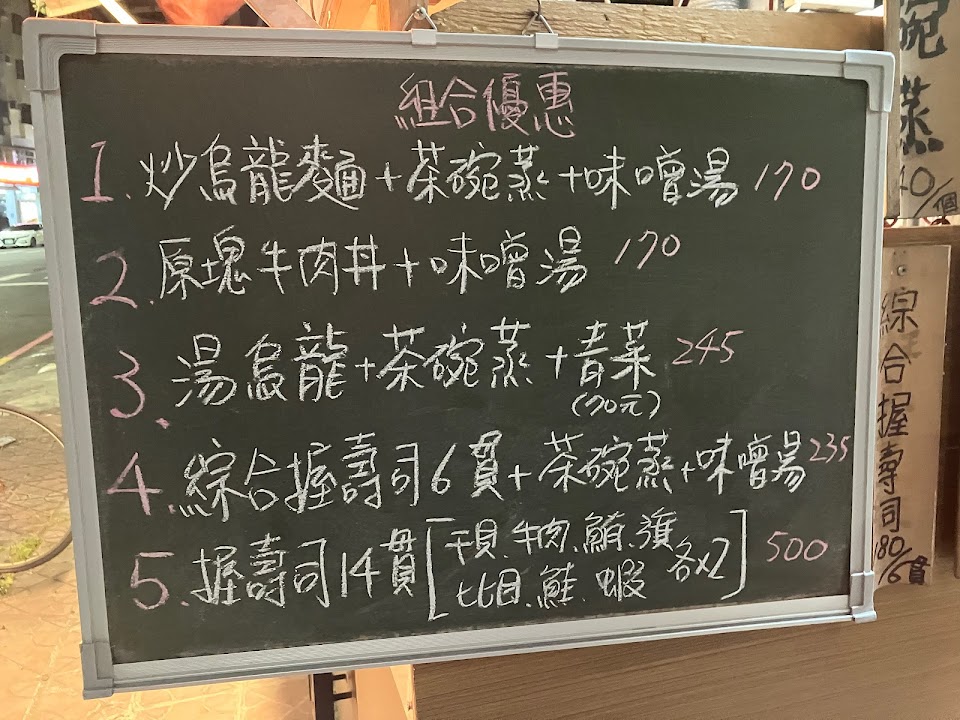 組合優惠
1. 炒烏龍麵+茶碗蒸+味噌湯 170
2. 原塊牛肉丼+味噌湯 170
3. 湯烏龍+茶碗蒸+青菜 245
(70元)
4. 綜合握壽司6貫+茶碗蒸+味噌湯 235
5. 握壽司14貫[干貝、牛肉、鮪、旗
比目、鮭、蝦 各x2] 500
碗蒸
40/個
綜合握壽司
180/6貫